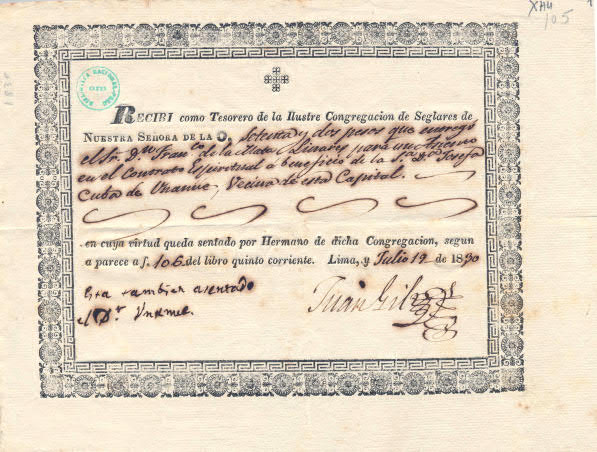 XAH
105
1830
BIBLIOTECA NACIONAL · PERU
RECIBI como Tesorero de la Ilustre Congregacion de Seglares de
NUESTRA SEÑORA DE LA O, Setenta y dos pesos que entregó
el Sr. D.ⁿ Fran.co de la Mata Linares para un Asiento
en el Contrato Espiritual á beneficio de la S.ª D.ª Josefa
Cuba de Unanue, Vecina de esta Capital.
en cuya virtud queda sentado por Hermano de dicha Congregacion, segun
a parece a f. 106. del libro quinto corriente. Lima, y Julio 12 de 1830
Esta tambien asentado
el D.r Unanue.
Juan Gil